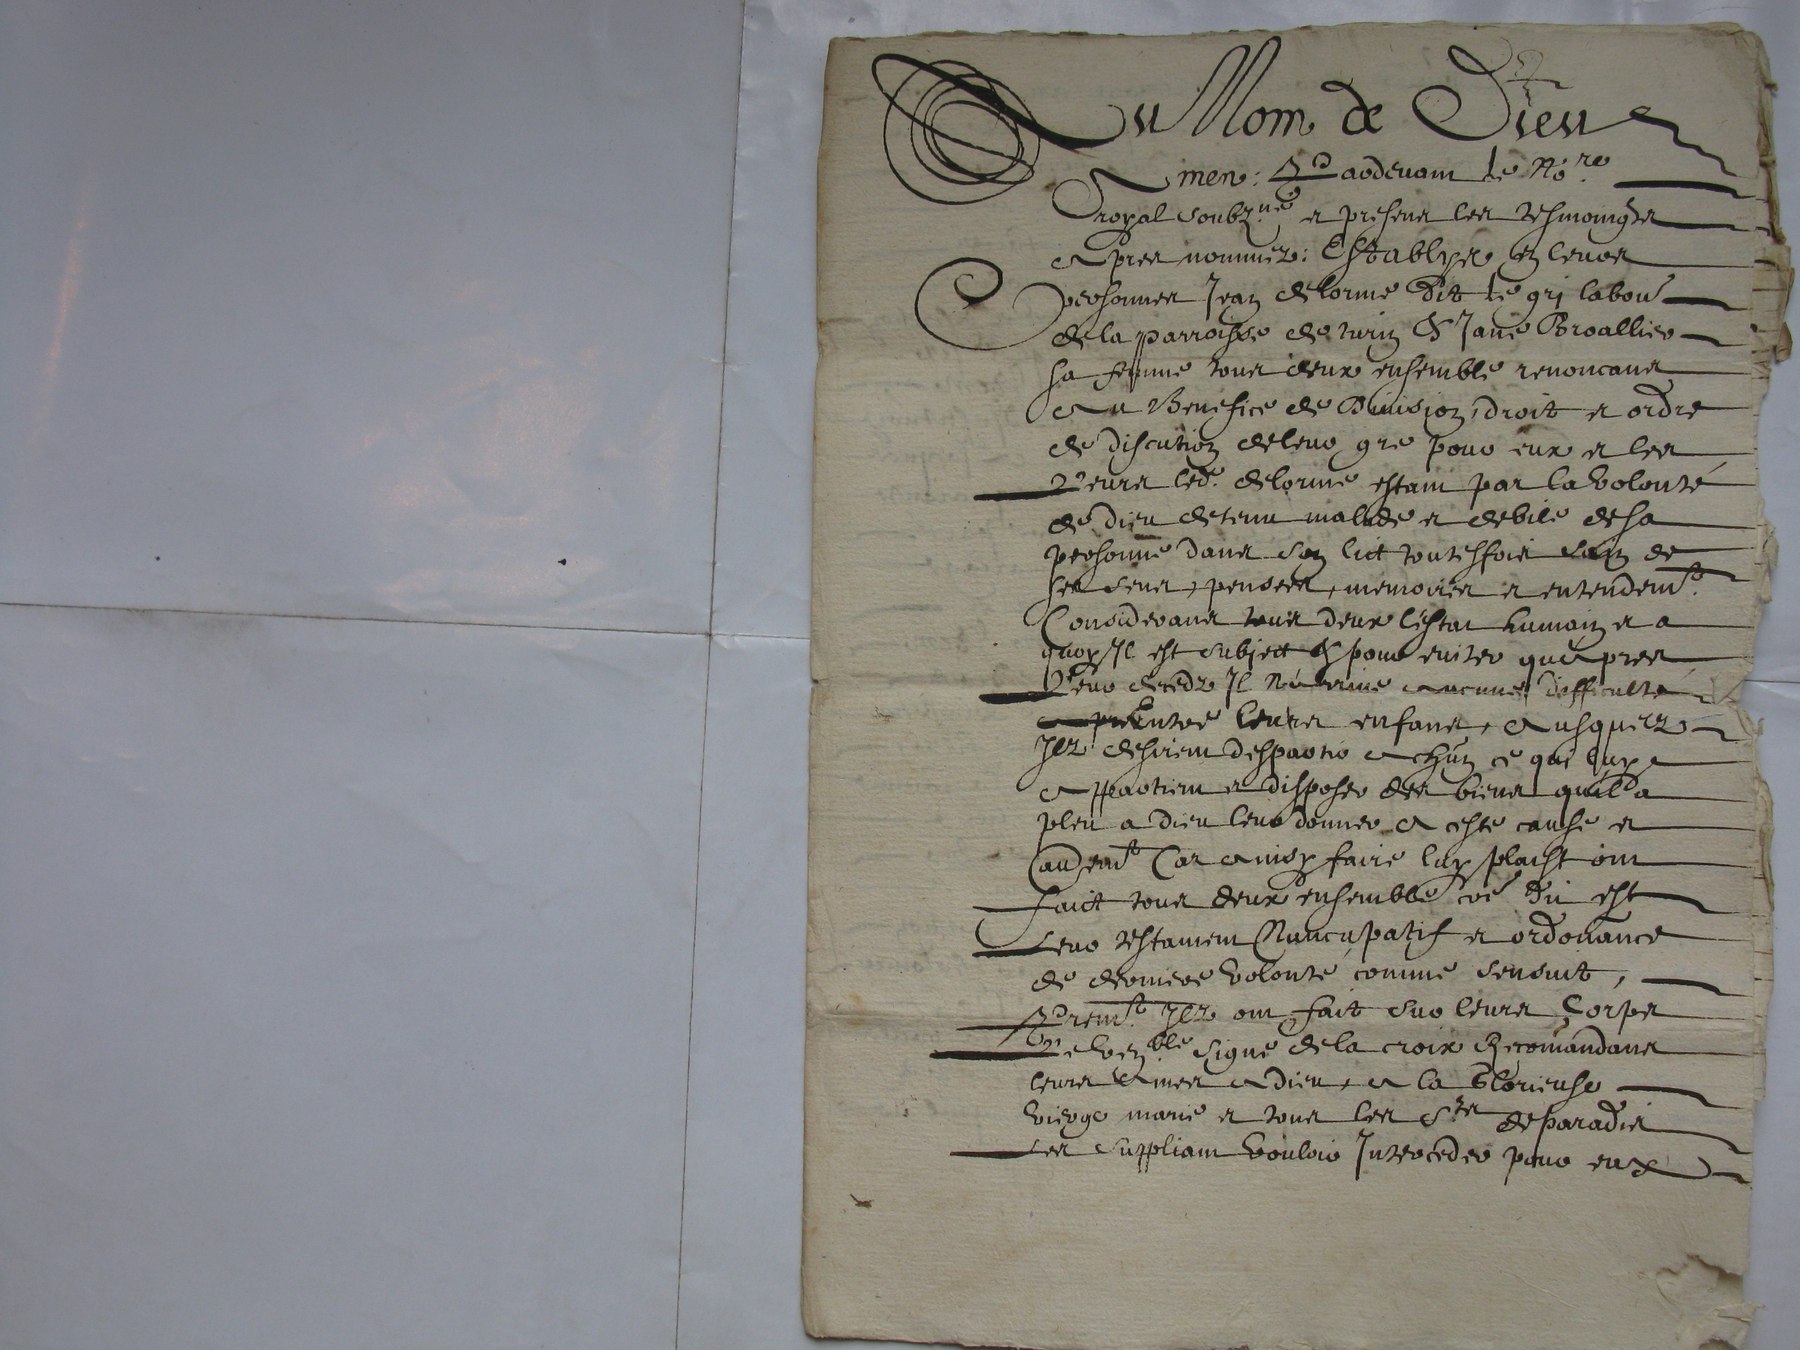 Au Nom de Dieu
Amen: Pardevant le No.re
royal soubz.né et present les tesmoingts
apres nommez: Establys en leurs
personnes Jean delorme dit le gri labou.r
de la parroisse de turin & Jane Broallier
sa femme tous deux ensemble renoncans
au Benefice de Division, droit et ordre
de discution de leur gre pour eux et les
leurs led. delorme estant par la volonté
de dieu detenu malade et debile de sa
personne dans son lict toutesfois sain de
ses sens, pensees, memoires et entendem.t
Considerans tous deux l'estat humain et a
quoy Il est subject & pour eviter qu'apres
leur decedz Il n'arrive aucune difficulté
entre leurs enfans, Ausquelz
Ilz desirent despartir a chun ce qui luy
appartient et disposer des biens quil a
pleu a dieu leur donner A ceste cause et
Car ainsy faire luy plaist ont
fait tous deux ensemble coe dit est
Leur testament Nuncupatif et ordonance
de derniere volonté comme sensuit,
Prem.t Ilz ont fait sur leurs Corps
le ven.ble signe de la croix Recomandans
leurs Ames a dieu, a la Glorieuse
vierge marie et tous les S.ts de paradis
Les suppliant vouloir Interceder pour eux